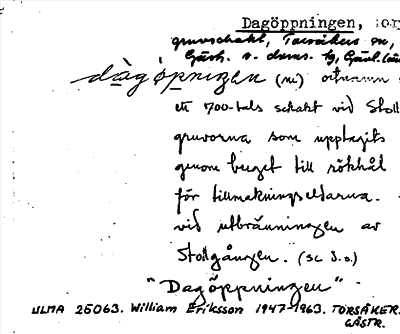 Dagöppningen,
gruvschakt, Torsåkers sn,
Gästr. ö. doms. tg, Gävl. län
dagöppnigen (m) ortnamn
ett 1700-tals schakt vid Stoll
gruvorna som upptagits
genom berget till rökhål
för tillmakningseldarna.
vid utbränningen av
Stollgången. (se d.o.)
"Dagöppningen"
ULMA 25063. William Eriksson 1947-1963. TORSÅKER.
GÄSTR.